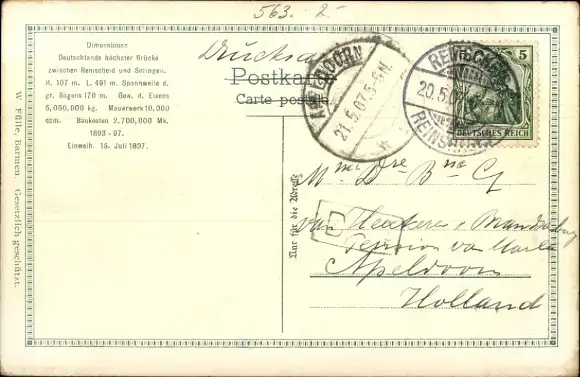 563. 2-
Dimensionen
Deutschlands höchster Brücke
zwischen Remscheid und Solingen.
H. 107 m. L. 491 m. Spannweite d.
gr. Bogens 170 m. Gew. d. Eisens
5,050,000 kg. Mauerwerk 10,000
qcm. Baukosten 2,700,000 Mk.
1893-97.
Einweih. 15. Juli 1897.
W. Fülle, Barmen. Gesetzlich geschützt.
Drucksache
Postkarte
Carte postale
APELDOORN
21.5.07.5-6N.
20.5.07
5
DEUTSCHES REICH
Nur für die Adresse
Mme Dre Bne
van Heeckeren Brandsenburg
Pension van
Apeldoorn
Holland